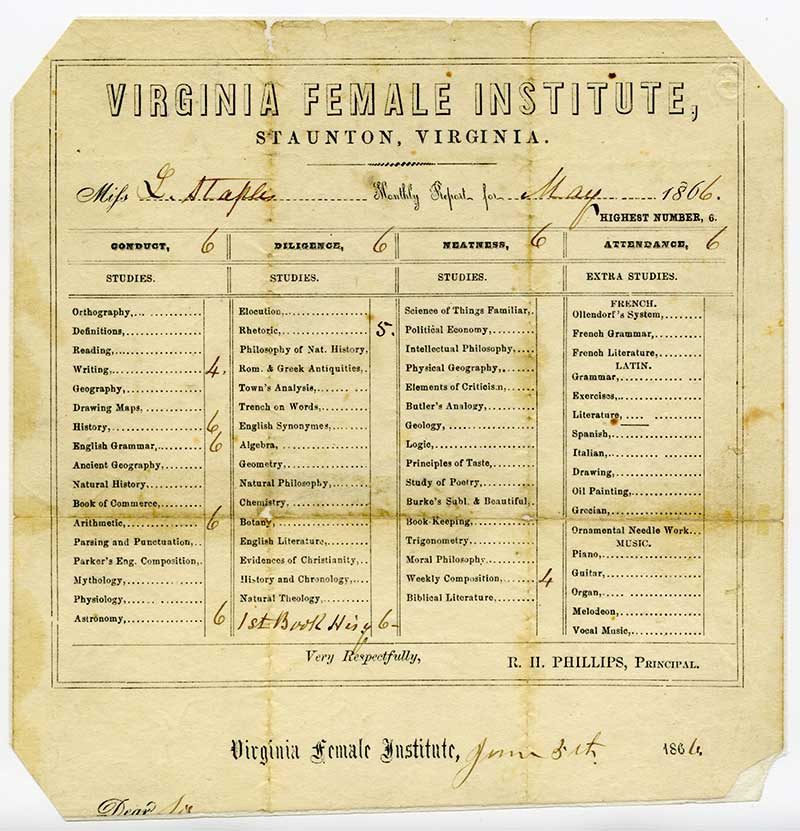 VIRGINIA FEMALE INSTITUTE,
STAUNTON, VIRGINIA.
Miss L. Staples Monthly Report for May 1866.
HIGHEST NUMBER, 6.
CONDUCT, 6 DILIGENCE, 6 NEATNESS, 6 ATTENDANCE, 6
STUDIES. STUDIES. STUDIES. EXTRA STUDIES.
Orthography,
Definitions,
Reading,
Writing, 4.
Geography,
Drawing Maps,
History, 6
English Grammar, 6
Ancient Geography,
Natural History,
Book of Commerce,
Arithmetic, 6
Parsing and Punctuation,
Parker's Eng. Composition,
Mythology,
Physiology,
Astronomy, 6
Elocution,
Rhetoric, 5.
Philosophy of Nat. History,
Rom. & Greek Antiquities,
Town's Analysis,
Trench on Words,
English Synonymes,
Algebra,
Geometry,
Natural Philosophy,
Chemistry,
Botany,
English Literature,
Evidences of Christianity,
History and Chronology,
Natural Theology,
1st Book Hisy 6
Science of Things Familiar,
Political Economy,
Intellectual Philosophy,
Physical Geography,
Elements of Criticism,
Butler's Analogy,
Geology,
Logic,
Principles of Taste,
Study of Poetry,
Burke's Subl. & Beautiful,
Book-Keeping,
Trigonometry,
Moral Philosophy
Weekly Composition, 4
Biblical Literature,
FRENCH.
Ollendorf's System,
French Grammar,
French Literature,
LATIN.
Grammar,
Exercises,
Literature,
Spanish,
Italian,
Drawing,
Oil Painting,
Grecian,
Ornamental Needle Work
MUSIC.
Piano,
Guitar,
Organ,
Melodeon,
Vocal Music,
Very Respectfully, R. H. PHILLIPS, PRINCIPAL.
Virginia Female Institute, June 5th 1866.
Dear Sir